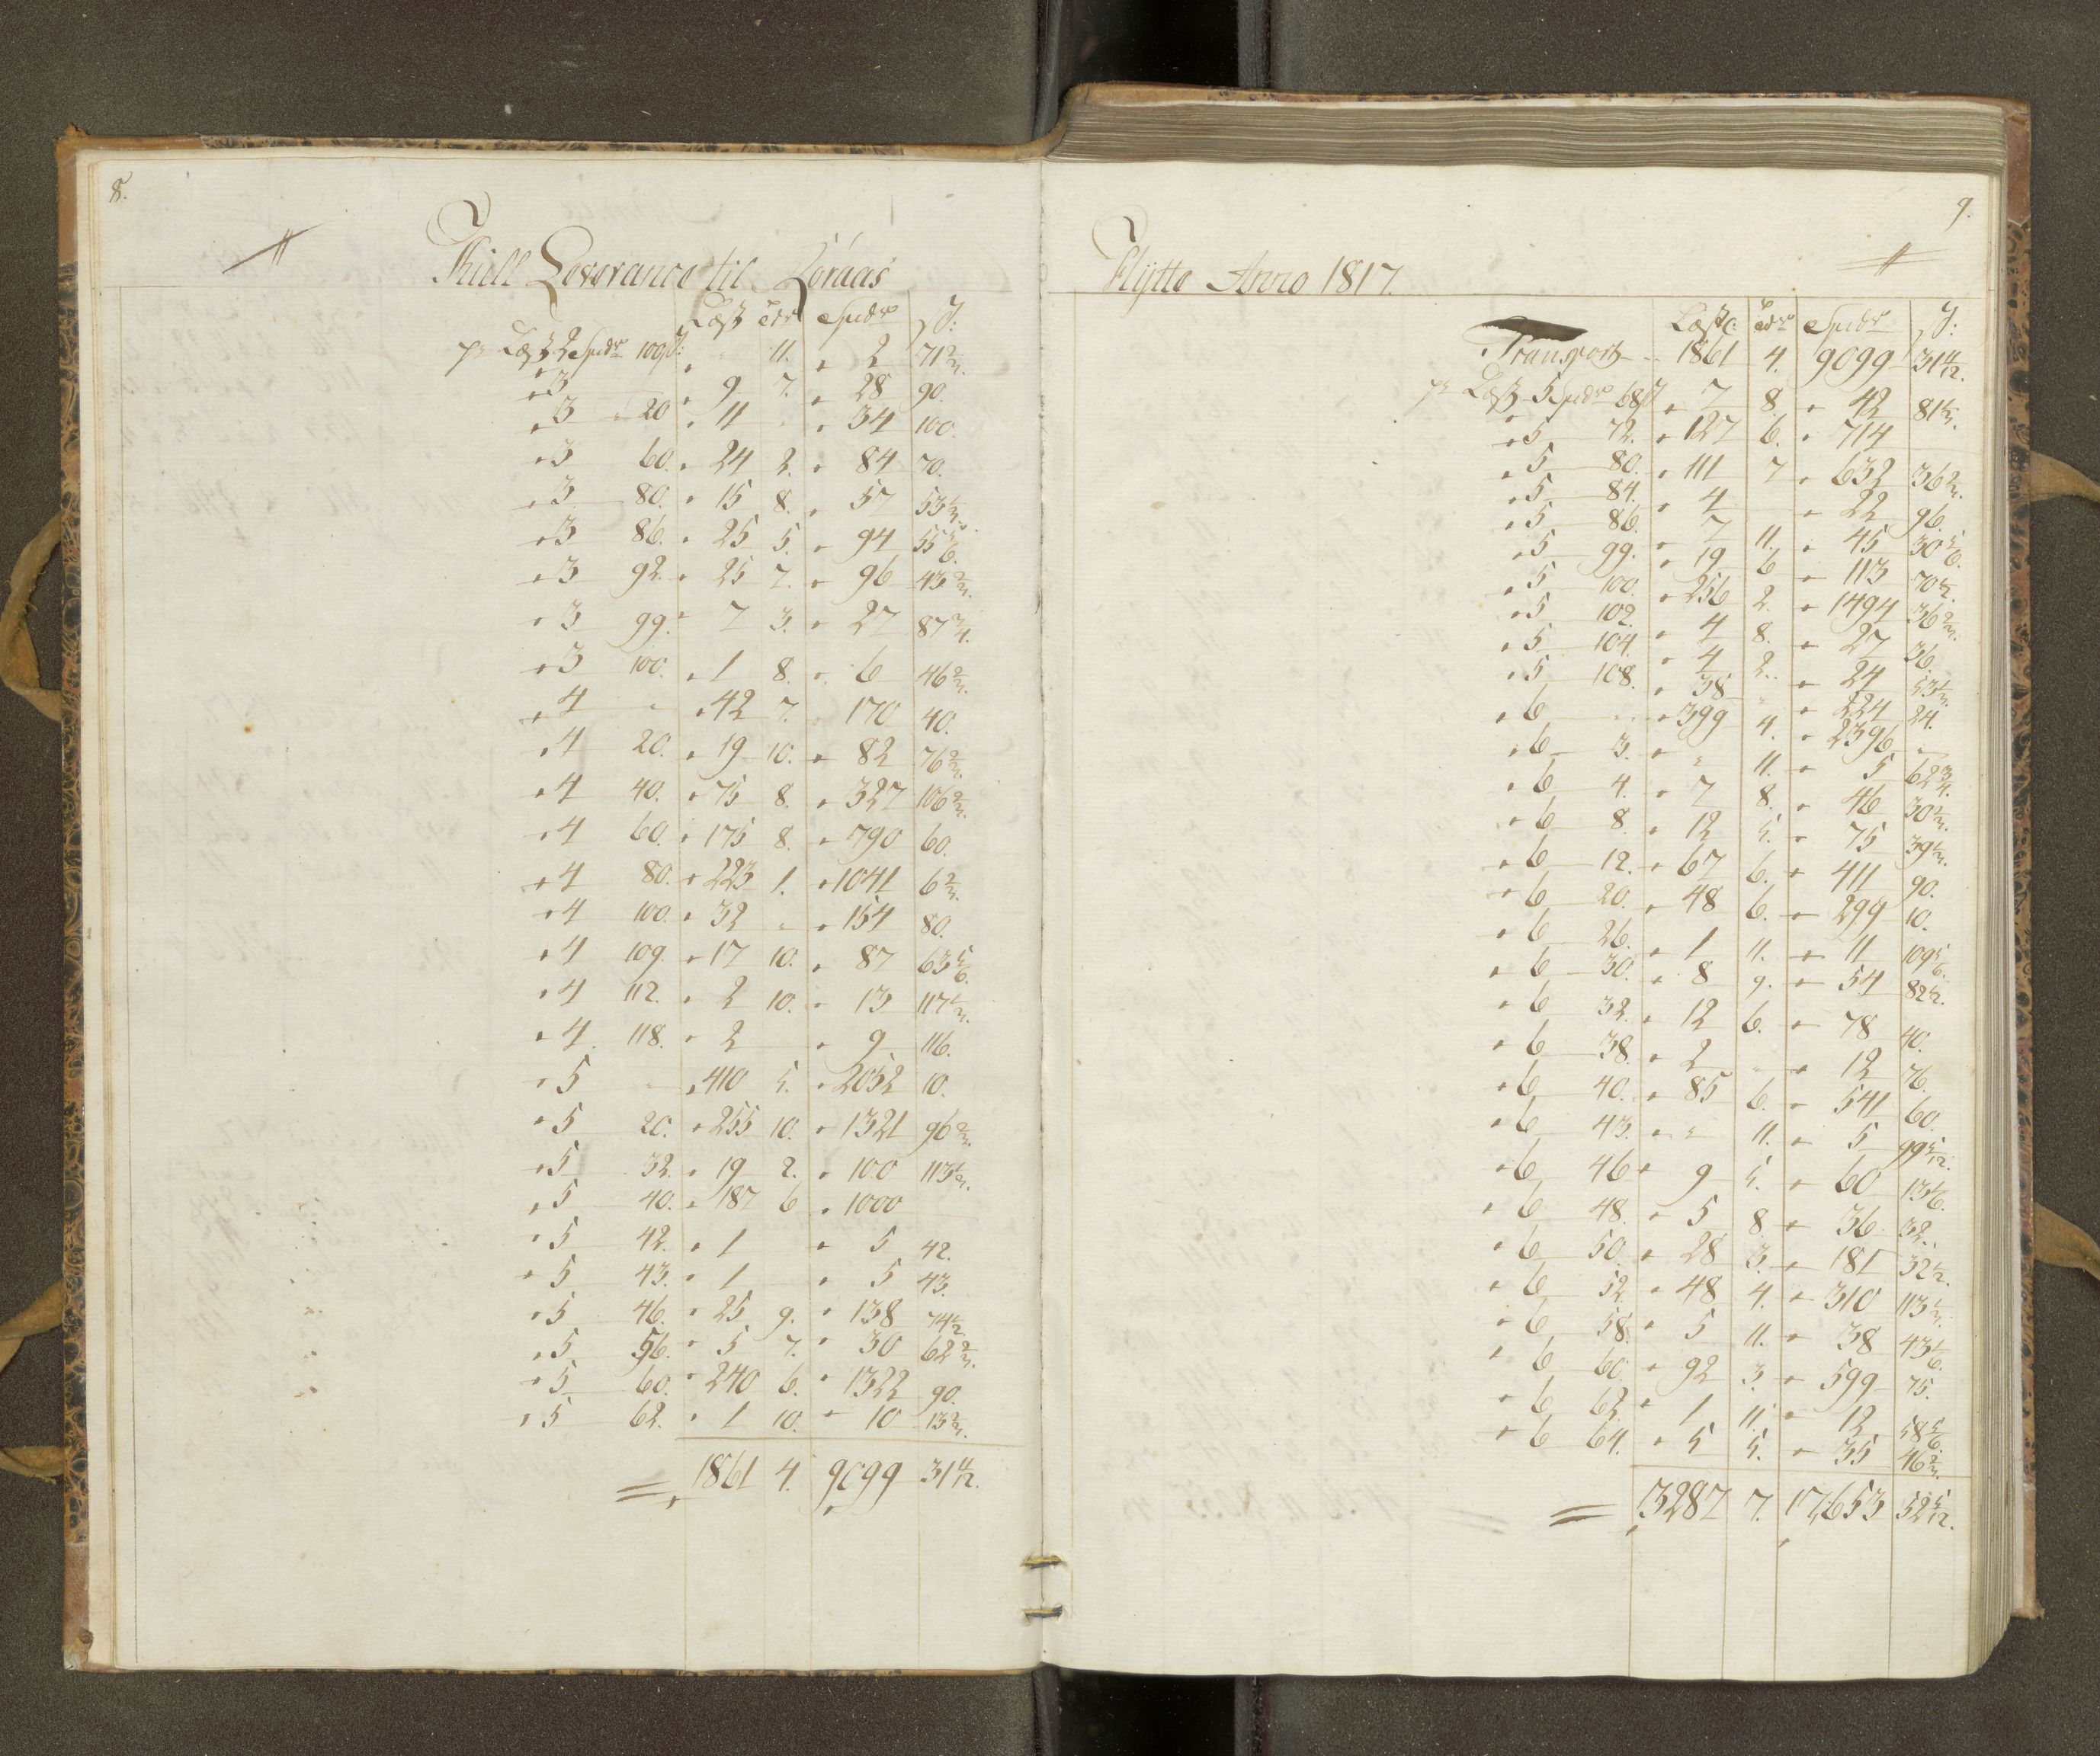 8.
Kull Leverance til Röraas
Læst tdr Spdr ß:
pr Læst 2 Spdr 100ß: " " 11. " 2 71 2/3.
" 3 " 9 7. " 28 90.
" 3 " 20 " 11 " " 34 100.
" 3 60. " 24 2. " 84 70.
" 3 80. " 15 8. " 57 53 1/3.
" 3 86. " 25 5. " 94 55 5/6.
" 3 92. " 25 7. " 96 43 2/3.
" 3 99. " 7 3. " 27 87 3/4.
" 3 100. " 1 8. " 6 46 2/3.
" 4 " " 42 7. " 170 40.
" 4 20. " 19 10. " 82 76 2/3.
" 4 40. " 75 8. " 327 106 2/3.
" 4 60. " 175 8. " 790 60.
" 4 80. " 223 1. " 1041 6 2/3.
" 4 100. " 32 " " 154 80.
" 4 109. " 17 10. " 87 63 5/6.
" 4 112. " 2 10. " 13 117 1/3.
" 4 118. " 2 " 9 116.
" 5 " 410 5. " 2052 10.
" 5 20. " 255 10. " 1321 96 2/3.
" 5 32. " 19 2. " 100 113 1/3.
" 5 40. " 187 6 " 1000
" 5 42. " 1 " 5 42.
" 5 43. " 1 " 5 43.
" 5 46. " 25 9. " 138 74 1/2.
" 5 56. " 5 7. " 30 62 2/3.
" 5 60. " 240 6. " 1322 90.
" 5 62. " 1 10. " 10 13 2/3.
= 1861 4. 9099 31 4/12.
9.
Hytte Anno 1817.
Læst tdr Spdr ß:
Transport 1861 4. 9099 31 4/12.
pr Læst 5 Spdr 68ß " 7 8. " 42 81 1/3.
" 5 72. " 127 6. " 714
" 5 80. " 111 7 " 632 36 2/3.
" 5 84. " 4 " 22 96.
" 5 86. " 7 11. " 45 30 5/6.
" 5 99. " 19 6 " 113 70 1/2.
" 5 100. " 256 2. " 1494 36 2/3.
" 5 102. " 4 8. " 27 36.
" 5 104. " 4 2. " 24 53 1/3.
" 5 108. " 38 " " 224 24.
" 6 " 399 4. " 2396 "
" 6 3. " " 11. " 5 62 3/4.
" 6 4. " 7 8. " 46 30 2/3.
" 6 8. " 12 5. " 75 39 1/3.
" 6 12. " 67 6. " 411 90.
" 6 20. " 48 6. " 299 10.
" 6 26. " 1 11. " 11 109 5/6.
" 6 30. " 8 9. " 54 82 1/2.
" 6 32. " 12 6. " 78 40.
" 6 38. " 2 " " 12 76.
" 6 40. " 85 6. " 541 60.
" 6 43. " " 11. " 5 99 5/12.
" 6 46 " 9 5. " 60 13 1/6.
" 6 48. " 5 8 " 36 32.
" 6 50. " 28 3. " 181 32 1/2.
" 6 52. " 48 4. " 310 113 1/3.
" 6 58. " 5 11. " 38 43 1/6.
" 6 60. " 92 3. " 599 75.
" 6 62. " 1 11. " 12 58 5/6.
" 6 64. " 5 5. " 35 46 2/3.
= 3287 7. 17,653 52 5/12.